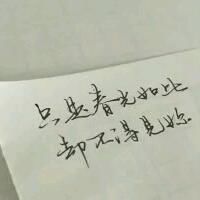 只是春光如此
却不得见你